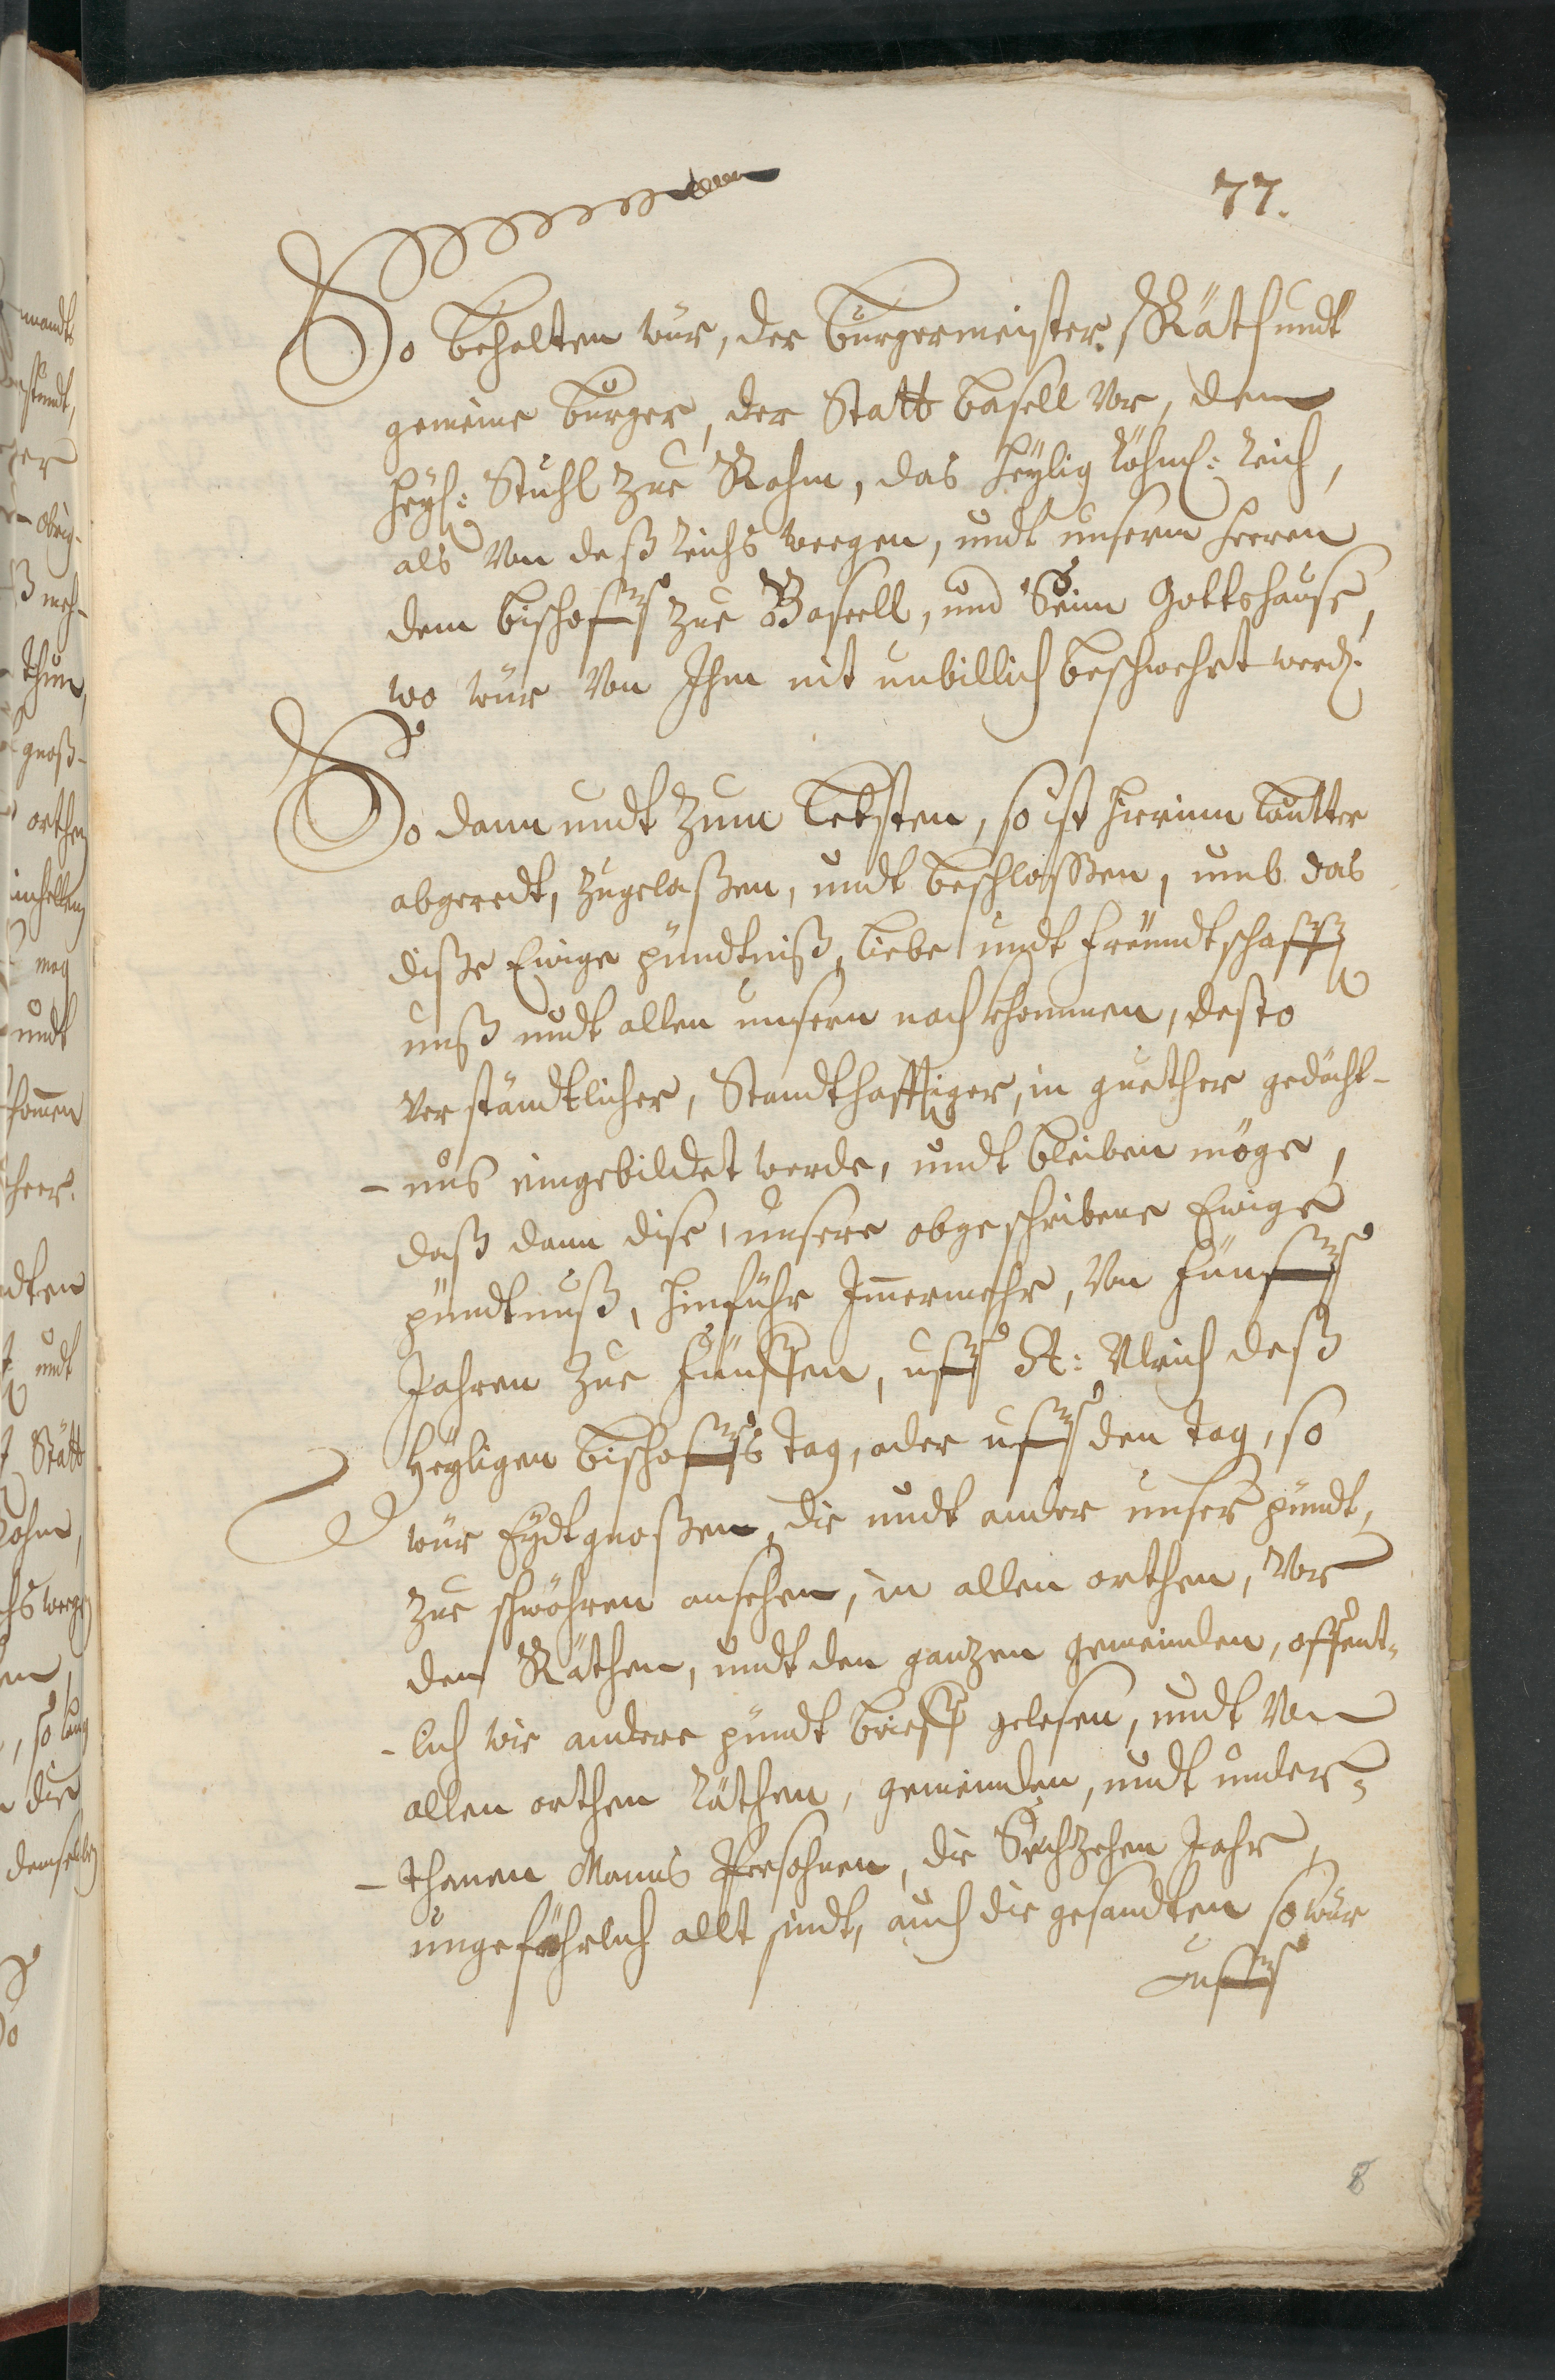 77.
So behalten wür, der burgermeister. Räth undt
gemeine burger, der Statt basell Vor, dem
heyl: Stuhl Zue Rohm, das heylig Röhml: Reich,
als Von deß Reichs weegen, undt unserm herren
dem bischoff Zue Baseell, und Seim Gottshause,
wo wür Von Ihm nit unbillich beschwehrt werd.
So dann undt Zum letsten, so ist hierinn lautter
abgeredt, Zugelaßen, undt beschloßen, umb das
diße Ewige pündtniß, liebe undt freündtschafft
unß undt allen unsern nach khommen, desto
Verständtlicher, Standthafftiger, in guether gedächt-
-nus eingebildet werde, undt bleiben möge,
daß dann dise, unsere obgeschribene Ewige
pündtnuß, hinführ Immermehr, Von fünff
Jahren Zue fünffen, uff St: Ulrich deß
heyligen bischoffs tag, oder uff den tag, so
wür Eydtgnoßen, die undt ander unser pündt,
Zue schwöhren ansehen, in allen orthen, Vor
den Räthen, undt den ganzen gemeinden, offent-
-lich wie andere pündt brieff gelesen, undt Von
allen orthen Räthen, gemeinden, undt under-
-thanen Manns Persohnen, die Sechzehen Jahr,
ungefährlich allt sindt, auch die gesandten so wür
uff
8
mandts
er
obrig-
meh-
thun,
gnoß-
orthen
mag
undt
kommen
heer.
undt
Statt
Rohm,
weegen
so lang
die
demselben
So